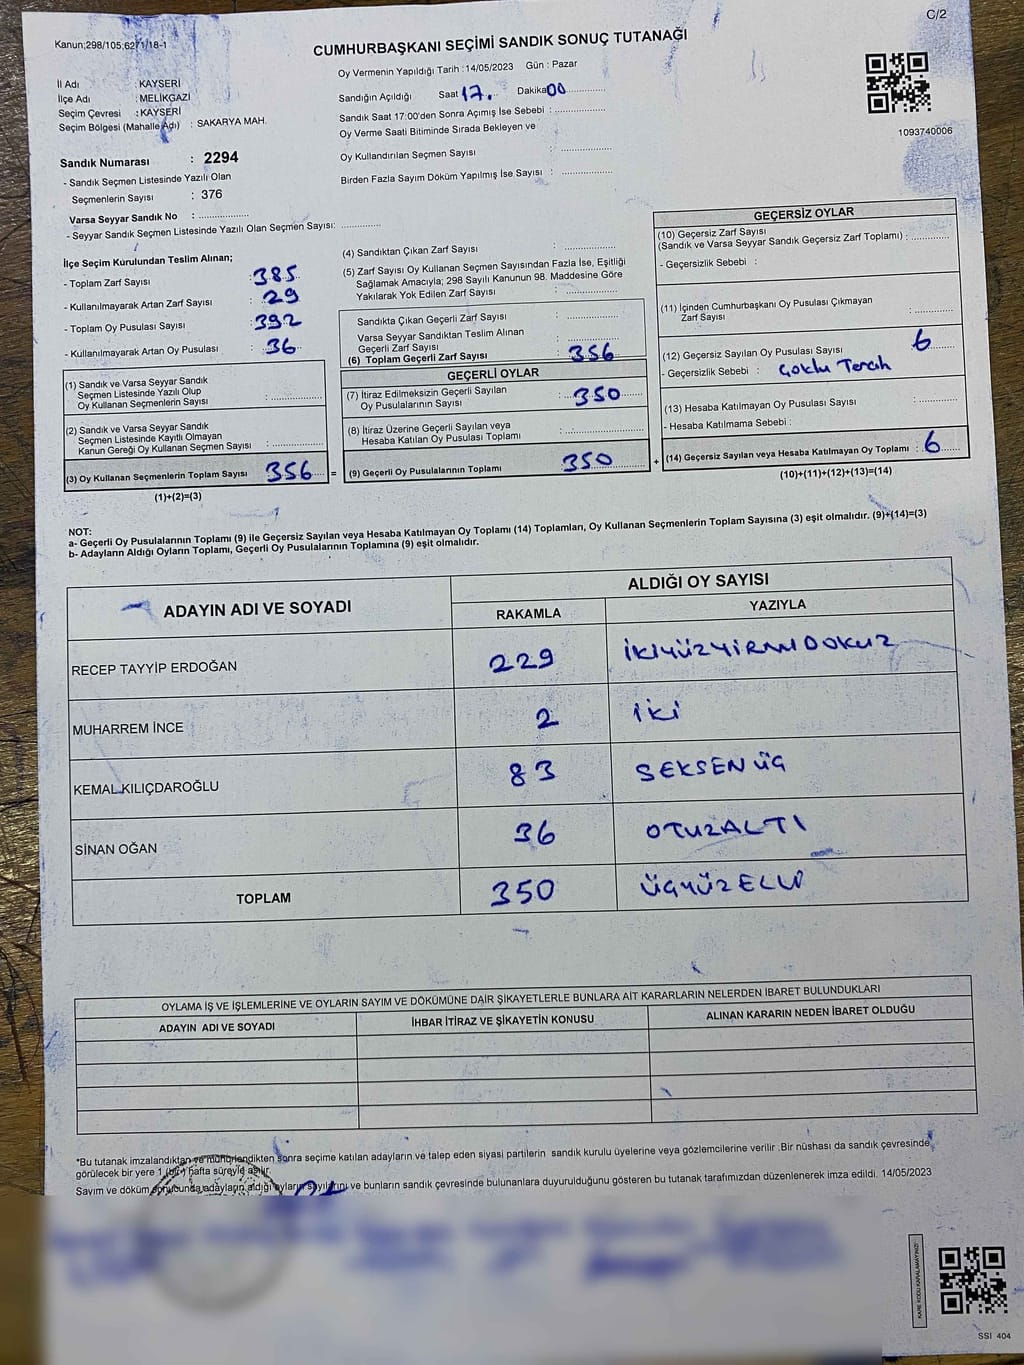 C/2
Kanun;298/105;6271/18-1
CUMHURBAŞKANI SEÇİMİ SANDIK SONUÇ TUTANAĞI
Oy Vermenin Yapıldığı Tarih :14/05/2023 Gün : Pazar
İl Adı : KAYSERİ
İlçe Adı : MELİKGAZİ
Seçim Çevresi : KAYSERİ
Seçim Bölgesi (Mahalle Adı) : SAKARYA MAH.
Sandığın Açıldığı Saat 17. Dakika 00
Sandık Saat 17:00'den Sonra Açımış İse Sebebi :
Oy Verme Saati Bitiminde Sırada Bekleyen ve
Oy Kullandırılan Seçmen Sayısı :
Birden Fazla Sayım Döküm Yapılmış İse Sayısı :
1093740006
Sandık Numarası : 2294
- Sandık Seçmen Listesinde Yazılı Olan
Seçmenlerin Sayısı : 376
Varsa Seyyar Sandık No :
- Seyyar Sandık Seçmen Listesinde Yazılı Olan Seçmen Sayısı:
İlçe Seçim Kurulundan Teslim Alınan;
- Toplam Zarf Sayısı : 385
- Kullanılmayarak Artan Zarf Sayısı : 29
- Toplam Oy Pusulası Sayısı : 392
- Kullanılmayarak Artan Oy Pusulası : 36
(1) Sandık ve Varsa Seyyar Sandık
Seçmen Listesinde Yazılı Olup
Oy Kullanan Seçmenlerin Sayısı :
(2) Sandık ve Varsa Seyyar Sandık
Seçmen Listesinde Kayıtlı Olmayan
Kanun Gereği Oy Kullanan Seçmen Sayısı :
(3) Oy Kullanan Seçmenlerin Toplam Sayısı 356 =
(1)+(2)=(3)
(4) Sandıktan Çıkan Zarf Sayısı :
(5) Zarf Sayısı Oy Kullanan Seçmen Sayısından Fazla İse, Eşitliği
Sağlamak Amacıyla; 298 Sayılı Kanunun 98. Maddesine Göre
Yakılarak Yok Edilen Zarf Sayısı :
Sandıkta Çıkan Geçerli Zarf Sayısı :
Varsa Seyyar Sandıktan Teslim Alınan
Geçerli Zarf Sayısı :
(6) Toplam Geçerli Zarf Sayısı : 356
GEÇERLİ OYLAR
(7) İtiraz Edilmeksizin Geçerli Sayılan
Oy Pusulalarının Sayısı : 350
(8) İtiraz Üzerine Geçerli Sayılan veya
Hesaba Katılan Oy Pusulası Toplamı :
(9) Geçerli Oy Pusulalarının Toplamı : 350 +
GEÇERSİZ OYLAR
(10) Geçersiz Zarf Sayısı
(Sandık ve Varsa Seyyar Sandık Geçersiz Zarf Toplamı) :
- Geçersizlik Sebebi :
(11) İçinden Cumhurbaşkanı Oy Pusulası Çıkmayan
Zarf Sayısı :
(12) Geçersiz Sayılan Oy Pusulası Sayısı : 6
- Geçersizlik Sebebi : Çoklu Tercih
(13) Hesaba Katılmayan Oy Pusulası Sayısı :
- Hesaba Katılmama Sebebi :
(14) Geçersiz Sayılan veya Hesaba Katılmayan Oy Toplamı : 6
(10)+(11)+(12)+(13)=(14)
NOT:
a- Geçerli Oy Pusulalarının Toplamı (9) ile Geçersiz Sayılan veya Hesaba Katılmayan Oy Toplamı (14) Toplamları, Oy Kullanan Seçmenlerin Toplam Sayısına (3) eşit olmalıdır. (9)+(14)=(3)
b- Adayların Aldığı Oyların Toplamı, Geçerli Oy Pusulalarının Toplamına (9) eşit olmalıdır.
ADAYIN ADI VE SOYADI
ALDIĞI OY SAYISI
RAKAMLA YAZIYLA
RECEP TAYYİP ERDOĞAN 229 İKİYÜZYİRMİDOKUZ
MUHARREM İNCE 2 İKİ
KEMAL KILIÇDAROĞLU 83 SEKSENÜÇ
SİNAN OĞAN 36 OTUZALTI
TOPLAM 350 ÜÇYÜZELLİ
OYLAMA İŞ VE İŞLEMLERİNE VE OYLARIN SAYIM VE DÖKÜMÜNE DAİR ŞİKAYETLERLE BUNLARA AİT KARARLARIN NELERDEN İBARET BULUNDUKLARI
ADAYIN ADI VE SOYADI İHBAR İTİRAZ VE ŞİKAYETİN KONUSU ALINAN KARARIN NEDEN İBARET OLDUĞU
*Bu tutanak imzalandıktan ve mühürlendikten sonra seçime katılan adayların ve talep eden siyasi partilerin sandık kurulu üyelerine veya gözlemcilerine verilir .Bir nüshası da sandık çevresinde
görülecek bir yere 1 (bir) hafta süreyle asılır.
Sayım ve döküm sonucunda adayların aldığı oyların sayılarını ve bunların sandık çevresinde bulunanlara duyurulduğunu gösteren bu tutanak tarafımızdan düzenlenerek imza edildi. 14/05/2023
KARE KODU KARALAMAYINIZ!
SSI 404